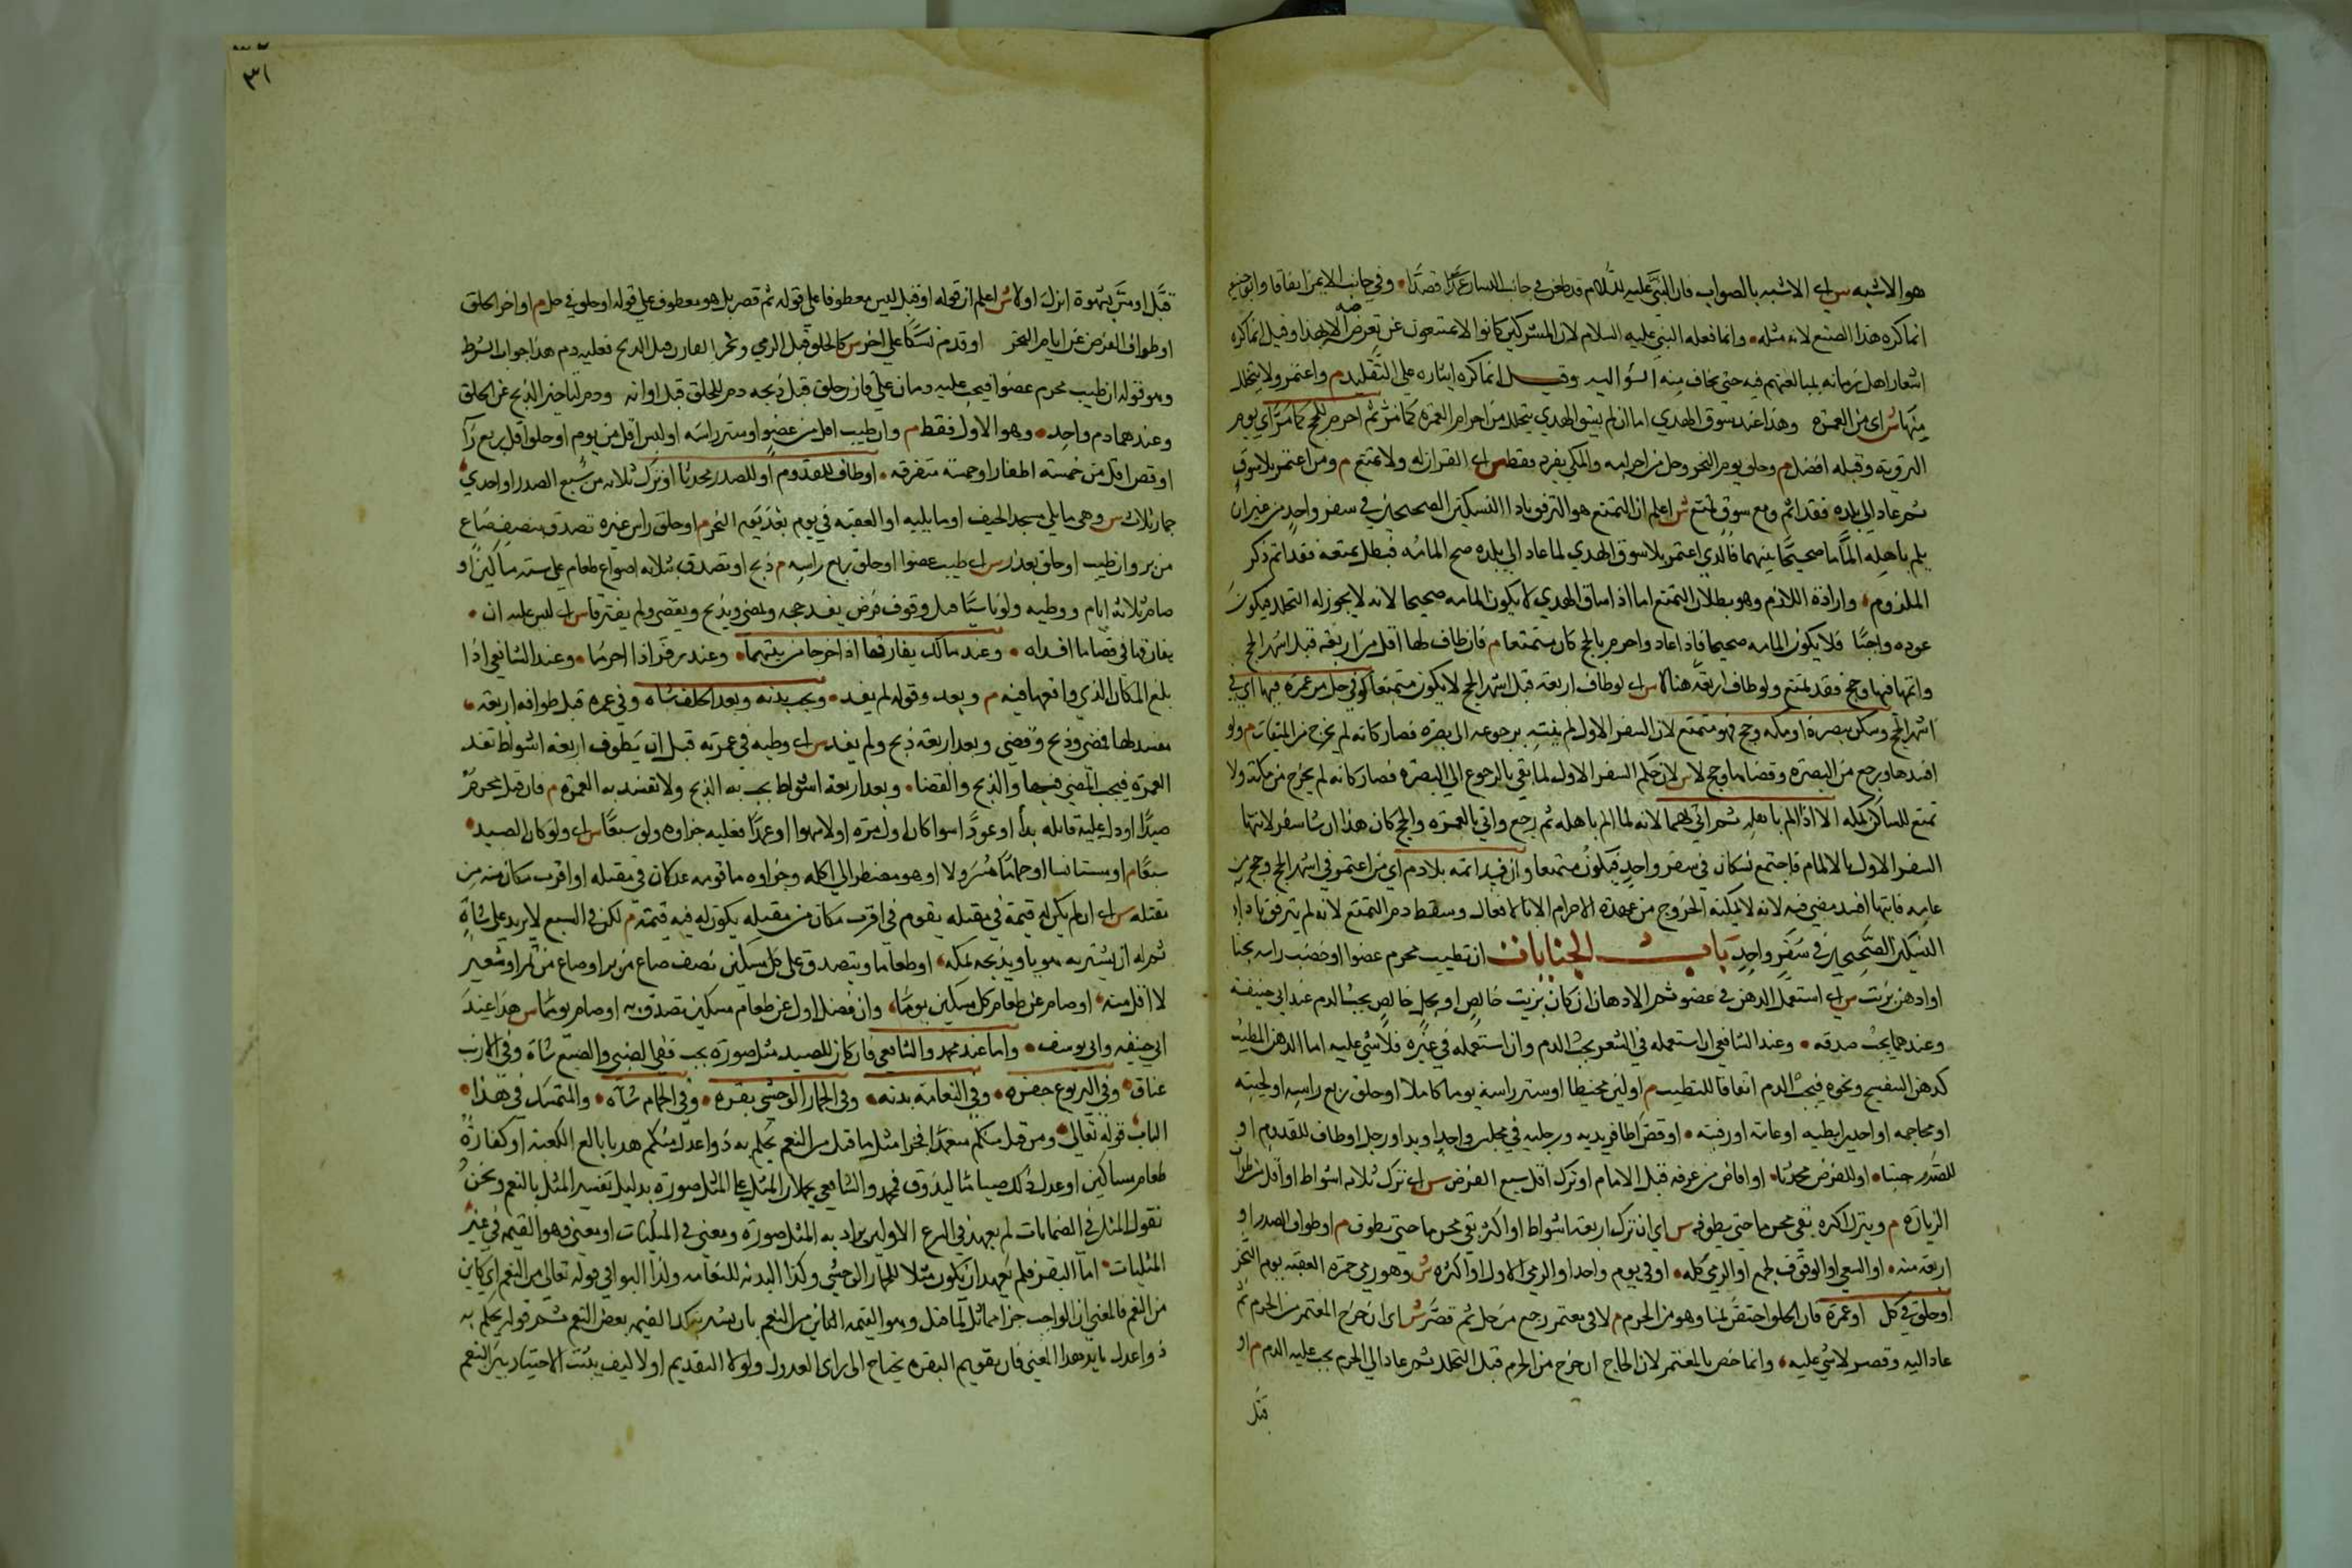 هو الاشبه س اي الاشبه بالصواب فان النبي عليه السلام قد طعن في جانب اليسار عمدا قصدا وفي جانب الايمن اتفاقا وابو حنيفة
انما كره هذا الصنع لانه مثله وانما فعله النبي عليه السلام لان المشركين كانوا لا يمتنعون عن تعرضه الا بهذا وقيل انما كره
اشعار اهل زمانه لمبالغتهم فيه حتى يخاف منه السراية وقيل انما كره ايثاره على التقليد م واعتمر ولا يتحلل
منها ش اي من العمرة وهذا عند سوق الهدي اما ان لم يسق الهدي يتحلل من احرام العمرة كما مر ثم احرم للحج كما مر اي يوم
التروية وقبله افضل م وحلق يوم النحر وحل من احراميه والمكي يفرد فقط س اي لا قران له ولا تمتع م ومن اعتمر بلا سوق
ثم عاد الى بلده فقد الم ومع سوق تمتع ش اعلم ان التمتع هو الترفق باداء النسكين الصحيحين في سفر واحد من غير ان
يلم باهله الماما صحيحا بينهما فالذي اعتمر بلا سوق الهدي لما عاد الى بلده صح المامه فبطل تمتعه فقد الم ذكر
الملزوم وارادة اللازم وهو بطلان التمتع اما اذا ساق الهدي لا يكون المامه صحيحا لانه لا يجوز له التحلل فيكون
عوده واجبا فلا يكون المامه صحيحا فاذا عاد واحرم بالحج كان متمتعا م فان طاف لها اقل من اربعة قبل اشهر الحج
واتمها فيها وحج فقد تمتع ولو طاف اربعة هنا لا س اي لو طاف اربعة قبل اشهر الحج لا يكون متمتعا كوفي حل من عمرة فيها اي في
اشهر الحج وسكن بصرة او مكة وحج فهو متمتع لان السفر الاول لم ينته برجوعه الى بصرة فصار كانه لم يخرج من الميقات م ولو
افسدها ورجع من البصرة وقضاها وحج لا س لان حكم السفر الاول لما بقي بالرجوع الى البصرة فصار كانه لم يخرج من مكة ولا
تمتع للساكن بمكة الا اذا الم باهله ثم اتى بهما لانه لما الم باهله ثم رجع واتى بالعمرة والحج كان هذا انشاء سفر لانتهاء
السفر الاول بالالمام فاجتمع نسكان في سفر واحد فيكون متمتعا وان قيد اتمه بلا دم اي من اعتمر في اشهر الحج وحج من
عامه فايهما افسد مضى فيه لانه لا يمكنه الخروج من عهدة الاحرام الا بالافعال وسقط دم التمتع لانه لم يترفق باداء
النسكين الصحيحين في سفر واحد باب الجنايات ان تطيب محرم عضوا او خضب راسه بحنا
او ادهن بزيت س اي استعمل الدهن في عضو ثم الادهان ان كان بزيت خالص او بحل خالص يجب الدم عند ابي حنيفة
وعندهما يجب صدقة وعند الشافعي ان استعمله في الشعر يجب الدم وان استعمله في غيره فلا شي عليه اما الدهن المطيب
كدهن البنفسج ونحوه فيجب الدم اتفاقا للتطيب م او لبس مخيطا او ستر راسه يوما كاملا او حلق ربع راسه او لحيته
او محاجمه او احدى ابطيه او عانته او رقبته او قص اظافير يديه ورجليه في مجلس واحد او يد او رجل او طاف للقدوم او
للصدر جنبا او للفرض محدثا او افاض من عرفة قبل الامام او ترك اقل سبع الفرض س اي ترك ثلاثة اشواط او اقل من طواف
الزيارة م وبترك اكثره بقي محرما حتى يطوفه س اي ان ترك اربعة اشواط او اكثر بقي محرما حتى يطوف م او طواف الصدر او
اربعة منه او السعي او الوقوف بجمع او الرمي كله او في يوم واحد او الرمي الاول او اكثره ش وهو رمي جمرة العقبة يوم النحر
او حلق في حل او عمرة فان الحلق اختص بمنا وهو من الحرم م لا في معتمر رجع من حل ثم قصر ش اي ان خرج المعتمر من الحرم ثم
عاد اليه وقصر لا شي عليه وانما خص بالمعتمر لان الحاج ان خرج من الحرم قبل التحلل ثم عاد الى الحرم يجب عليه الدم م او
قبل
٣١
قبل او مس بشهوة انزل او لا ش اعلم ان قوله او قبل ليس معطوفا على قوله ثم قصر بل هو معطوف على قوله او حلق في حل م او اخر الحلق
او طواف الفرض عن ايام النحر او قدم نسكا على اخر س كالحلق قبل الرمي ونحر القارن قبل الذبح فعليه دم هذا جواب الشرط
وهو قوله ان طيب محرم عضوا فيجب عليه دمان على قارن حلق قبل ذبحه دم للحلق قبل اوانه ودم لتاخير الذبح عن الحلق
وعندهما دم واحد وهو الاول فقط م وان طيب اقل من عضو او ستر راسه او لبس اقل من يوم او حلق اقل ربع را
او قص اقل من خمسة اظفار او خمسة متفرقة او طاف للقدوم او للصدر محدثا او ترك ثلاثة من سبع الصدر او احدى
جمار ثلاث س وهي ما يلي مسجد الخيف او ما يليه او العقبة في يوم بعد يوم النحر م او حلق راس غيره تصدق بنصف صاع
من بر وان طيب او حلق بعذر س اي طيب عضوا او حلق ربع راسه م ذبح او تصدق بثلاثة اصواع طعام على ستة مساكين او
صام ثلاثة ايام ووطيه ولو ناسيا قبل وقوف فرض يفسد حجه ويمضي ويذبح ويقضي ولم يفترقا س اي ليس عليه ان
يفارقها في قضاء ما افسداه وعند مالك يفارقها اذا خرجا من بيتهما وعند زفر اذا احرما وعند الشافعي اذا
بلغ المكان الذي واقعها فيه م وبعد وقوفه لم يفسد وتجب بدنة وبعد الحلق شاة وفي عمرة قبل طوافه اربعة
مفسد لها فمضى وذبح وقضى وبعد اربعة ذبح ولم يفسد س اي وطيه في عمرته قبل ان يطوف اربعة اشواط تفسد
العمرة فيجب المضي فيها والذبح والقضا وبعد اربعة اشواط يجب به الذبح ولا تفسد به العمرة م فان قتل محرم
صيدا او دل عليه قاتله بدأ او عودا سوا كان اول مرة او لا سهوا او عمدا فعليه جزاوه ولو سبعا س اي ولو كان الصيد
سبعا م او مستانسا او حماما مسرولا او هو مضطر الى اكله وجزاوه ما قومه عدلان في مقتله او اقرب مكان منه من
مقتله س اي ان لم يكن له قيمة في مقتله يقوم في اقرب مكان من مقتله يكون له فيه قيمة م لكن في السبع لا يزيد على شاة
ثم له ان يشتري به هديا ويذبحه بمكة او طعاما ويتصدق على كل مسكين نصف صاع من بر او صاع من تمر او شعير
لا اقل منه او صام عن طعام كل مسكين يوما وان فضل اول عن طعام مسكين تصدق به او صام يوما س هذا عند
ابي حنيفة وابي يوسف واما عند محمد والشافعي فان كان للصيد مثل صورة يجب ففي الضبي والضبع شاة وفي الارنب
عناق وفي اليربوع جفرة وفي النعامة بدنة وفي الحمار الوحشي بقرة وفي الحمام شاة والمتمسك في هذا
الباب قوله تعالى ومن قتله منكم متعمدا فجزا مثل ما قتل من النعم يحكم به ذوا عدل منكم هديا بالغ الكعبة او كفارة
طعام مساكين او عدل ذلك صياما ليذوق فمحمد والشافعي يحملان المثل على المثل صورة بدليل تفسير المثل بالنعم ونحن
نقول المثل في الضمانات لم يعهد في الشرع الا وان يراد به المثل صورة ومعنى في المثليات او معنى وهو القيمة في غير
المثليات اما البقر فلم يعهد ان يكون مثلا للحمار الوحشي وكذا البدنة للنعامة وكذا البواقي قوله تعالى من النعم اي كاين
من النعم فالمعنى ان الواجب جزا مماثل لما قتل وهو القيمة الكاين من النعم بان يشتري بتلك القيمة بعض النعم ثم قوله يحكم به
ذوا عدل يؤيد هذا المعنى فان تقويم البقرة يحتاج الى راي العدول ولولا التقديم اولا كيف يثبت الاختيار بين النعم